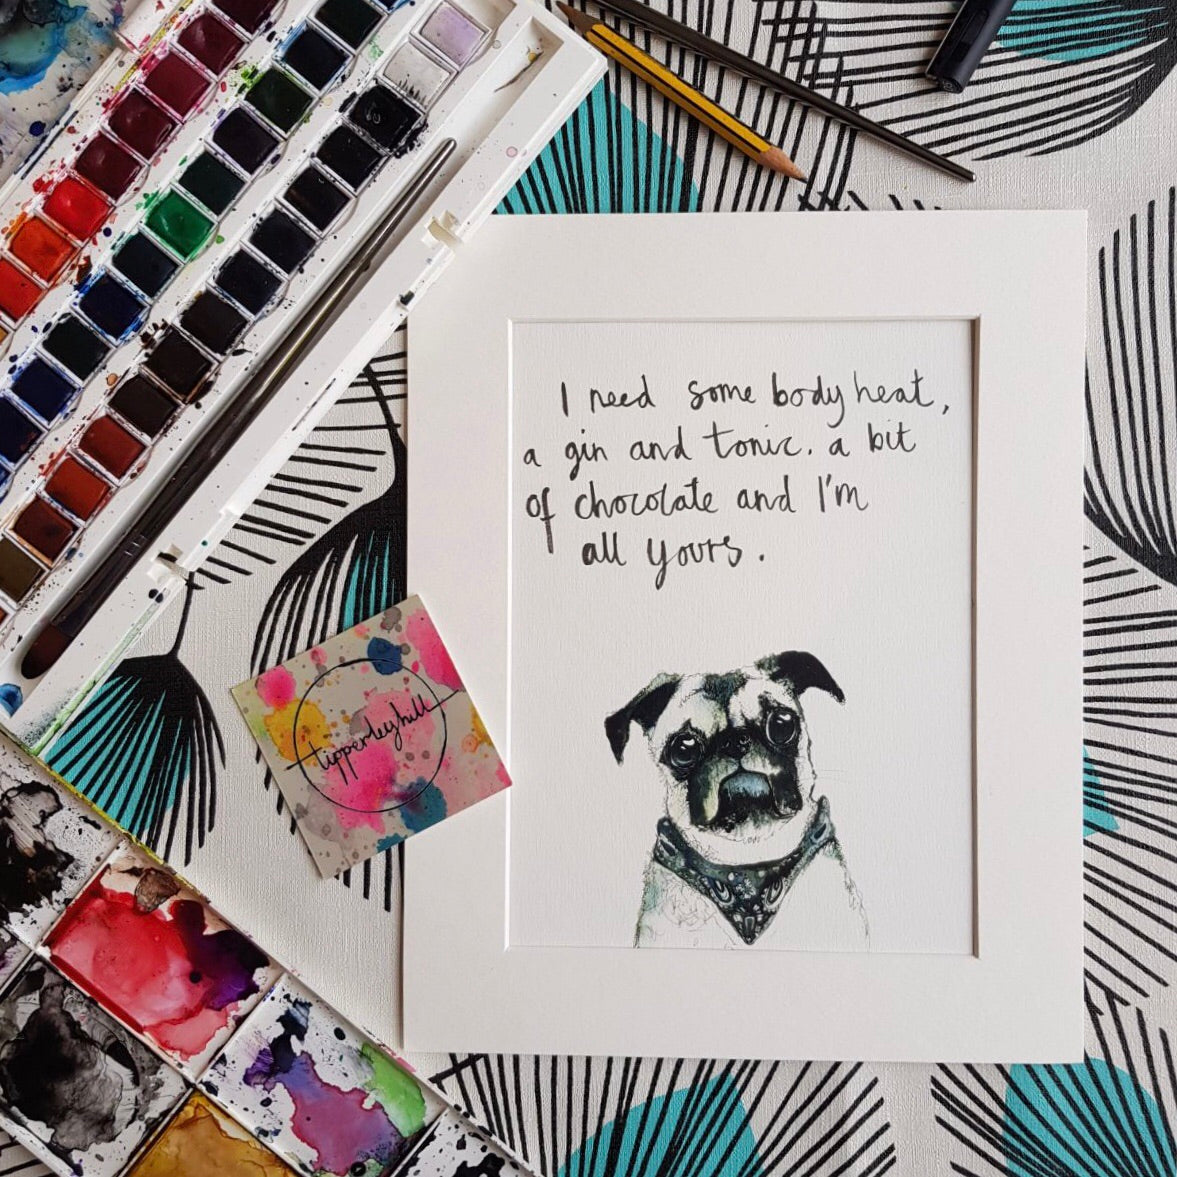 I need some body heat,
a gin and tonic. a bit
of chocolate and I'm
all yours.
tipperleyhill